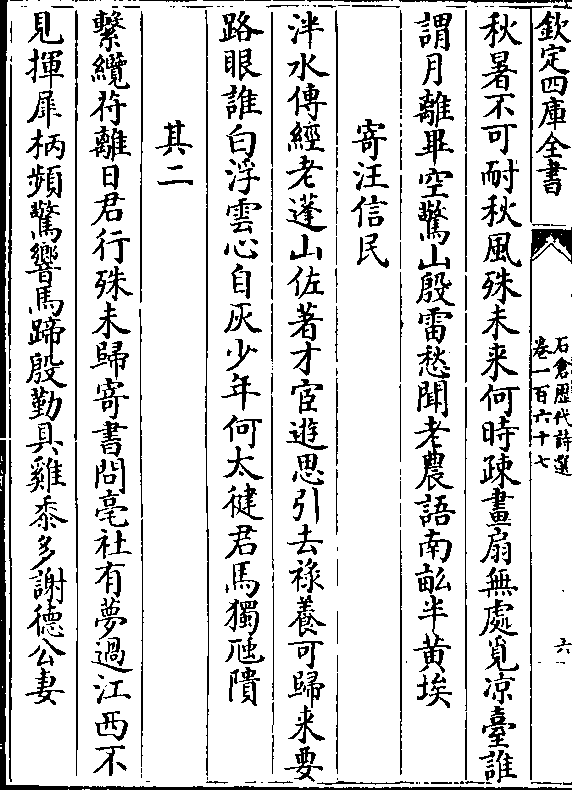 欽定四庫全書
石倉歷代詩選
卷一百六十七
六
秋暑不可耐秋風殊未来何時疎畫扇無處覓凉臺誰
謂月離畢空驚山殷雷愁聞老農語南畝半黄埃
寄汪信民
泮水傳經老蓬山佐著才宦遊思引去祿養可歸来要
路眼誰白浮雲心自灰少年何太健君馬獨虺隤
其二
繫纜符離日君行殊未歸寄書問亳社有夢過江西不
見揮犀柄頻驚響馬蹄殷勤具雞黍多謝德公妻